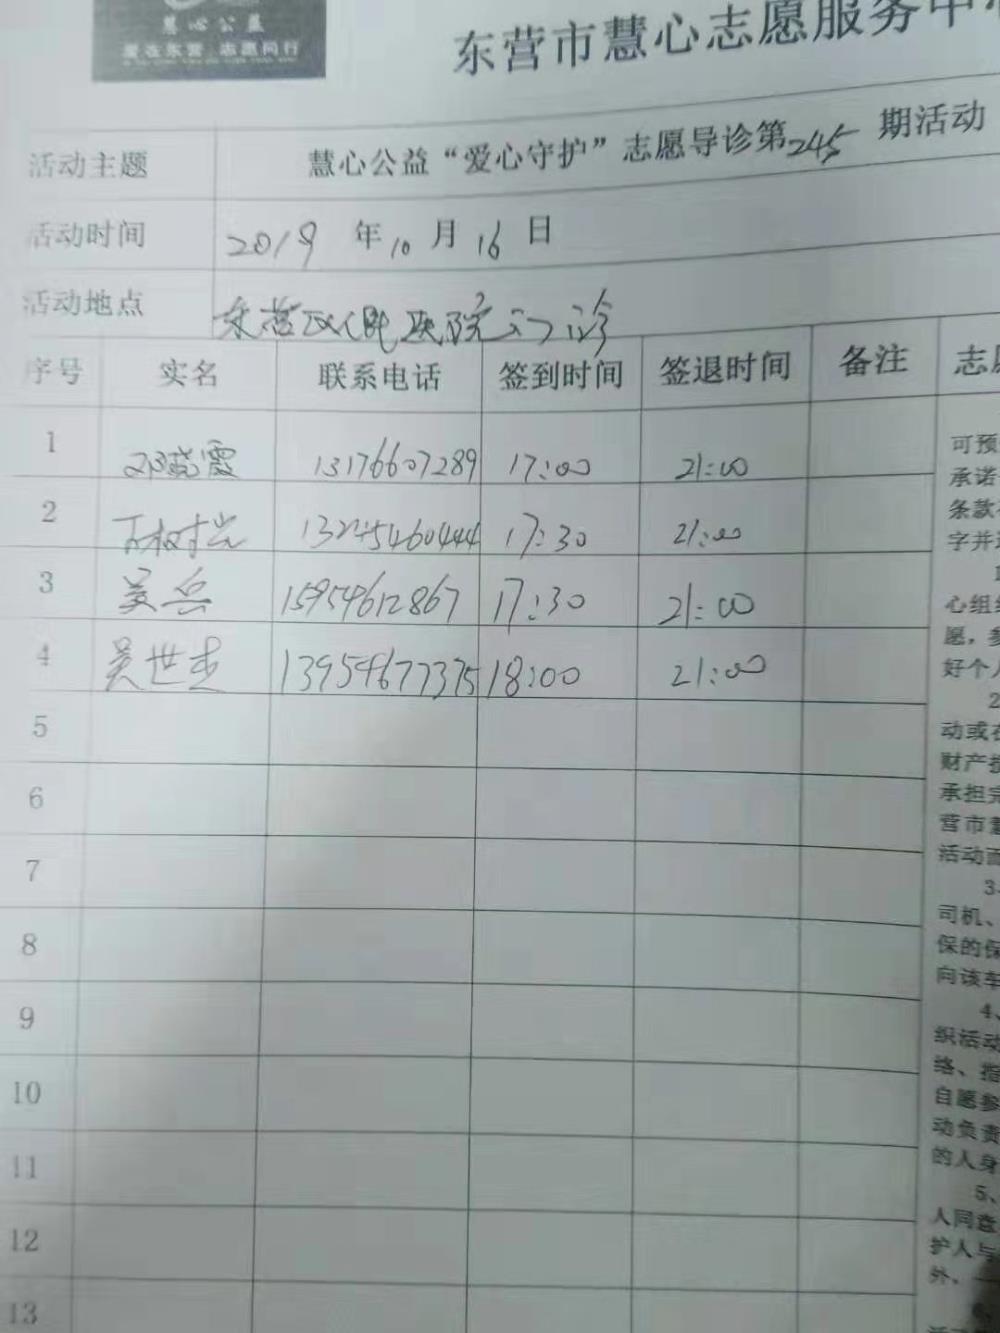 慧心公益
爱在东营 志愿同行
东营市慧心志愿服务中
活动主题 慧心公益“爱心守护”志愿导诊第245期活动
活动时间 2019年10月16日
活动地点 东营区人民医院门诊
序号 实名 联系电话 签到时间 签退时间 备注 志愿
1 邓晓霞 13176607289 17:00 21:00
2 13245460444 17:30 21:00
3 吴兵 15954612867 17:30 21:00
4 吴世杰 13954677375 18:00 21:00
5
6
7
8
9
10
11
12
13
可预
承诺
条款
字并
心组织
愿，参
好个人
2
动或在
财产损
承担完
营市慧
活动而
3、
司机、
保的保
向该车
4、
织活动
络、指
自愿参
动负责
的人身
5、
人同意
护人与
外，